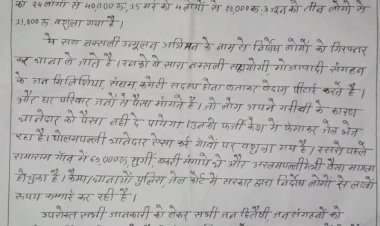 का 24 लोगों से 40,000 रु, 15 मई का 4 लोगों से 21,000 रु. 3 जून को तीन लोगों से
31,000 रु. वसूला गया है।
ये सब नक्सली उन्मूलन अभियान के नाम से निर्दोष लोगों को गिरफ्तार
कर थाना ले जाते है। इनको के साथ नक्सली सहयोगी माओवादी संगठन
के जन मिलिशिया, संघम, कमेटी सदस्य होना बताकर बेदम पीटाई करते है।
और घर परिवार जनों से पैसा मांगते है। जो लोग अपने गरीबी के कारण
थानेदार को पैसा नही दे पायेगा। उनको फर्जी केश में फंसाकर जेल भेज
रहा है। पोलमपल्ली थानेदार ऐसा कई गांवों पर वसूला गया है। इससे पहले
रामाराम गाँव में 69,000 रु, मुर्गी, बकरी मंगाये थे और अरलमपल्ली में ऐसा मामला
हो चुका है। कैम्प/थानाओं पुलिस, जेल कोर्ट में सरकार द्वारा निर्दोष लोगों से लाखों
रूपया कमाई कर रही है।
उपरोक्त सभी जानकारी को लेकर सभी जन हितैषी, जन संगठनों को